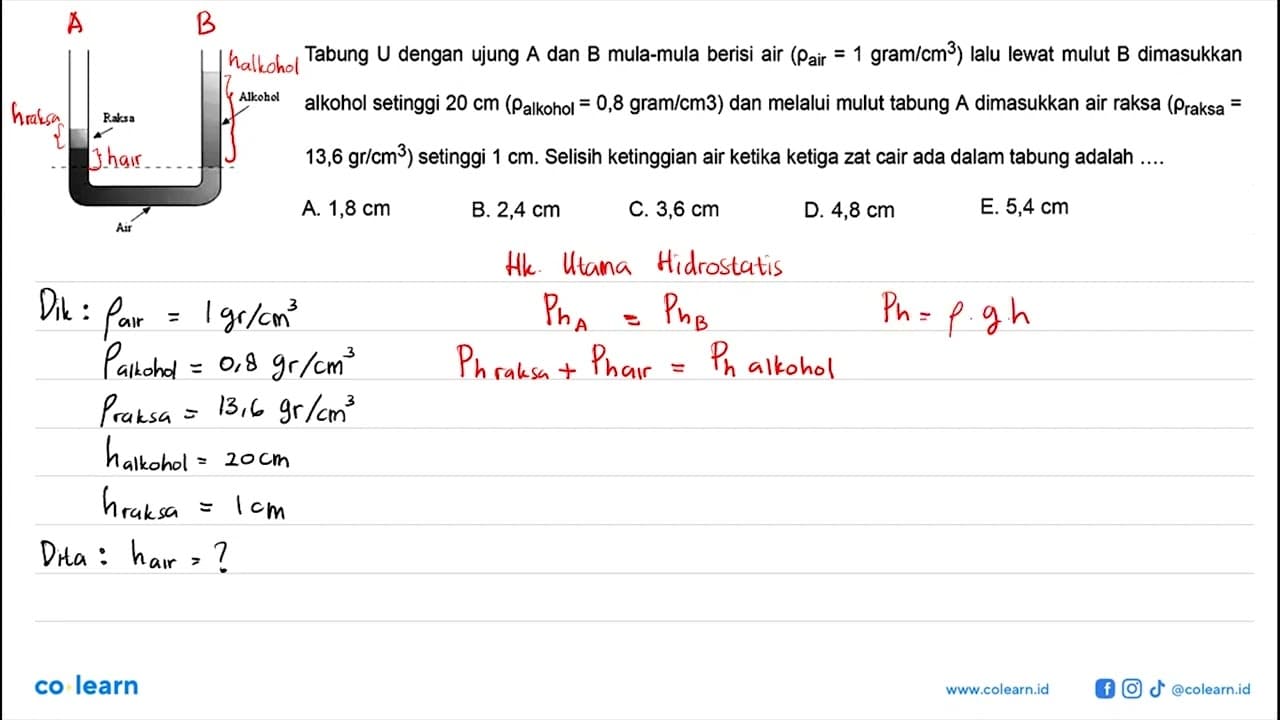 A B
halkohol
Alkohol
hraksa
Raksa
hair
Air
Tabung U dengan ujung A dan B mula-mula berisi air (ρair = 1 gram/cm³) lalu lewat mulut B dimasukkan
alkohol setinggi 20 cm (ρalkohol = 0,8 gram/cm3) dan melalui mulut tabung A dimasukkan air raksa (ρraksa =
13,6 gr/cm³) setinggi 1 cm. Selisih ketinggian air ketika ketiga zat cair ada dalam tabung adalah ....
A. 1,8 cm B. 2,4 cm C. 3,6 cm D. 4,8 cm E. 5,4 cm
Hk. Utama Hidrostatis
Dik : ρair = 1 gr/cm³
ρalkohol = 0,8 gr/cm³
ρraksa = 13,6 gr/cm³
halkohol = 20 cm
hraksa = 1 cm
Dita : hair = ?
PhA = PhB
Ph raksa + Phair = Ph alkohol
Ph = ρ . g . h
co learn
www.colearn.id @colearn.id